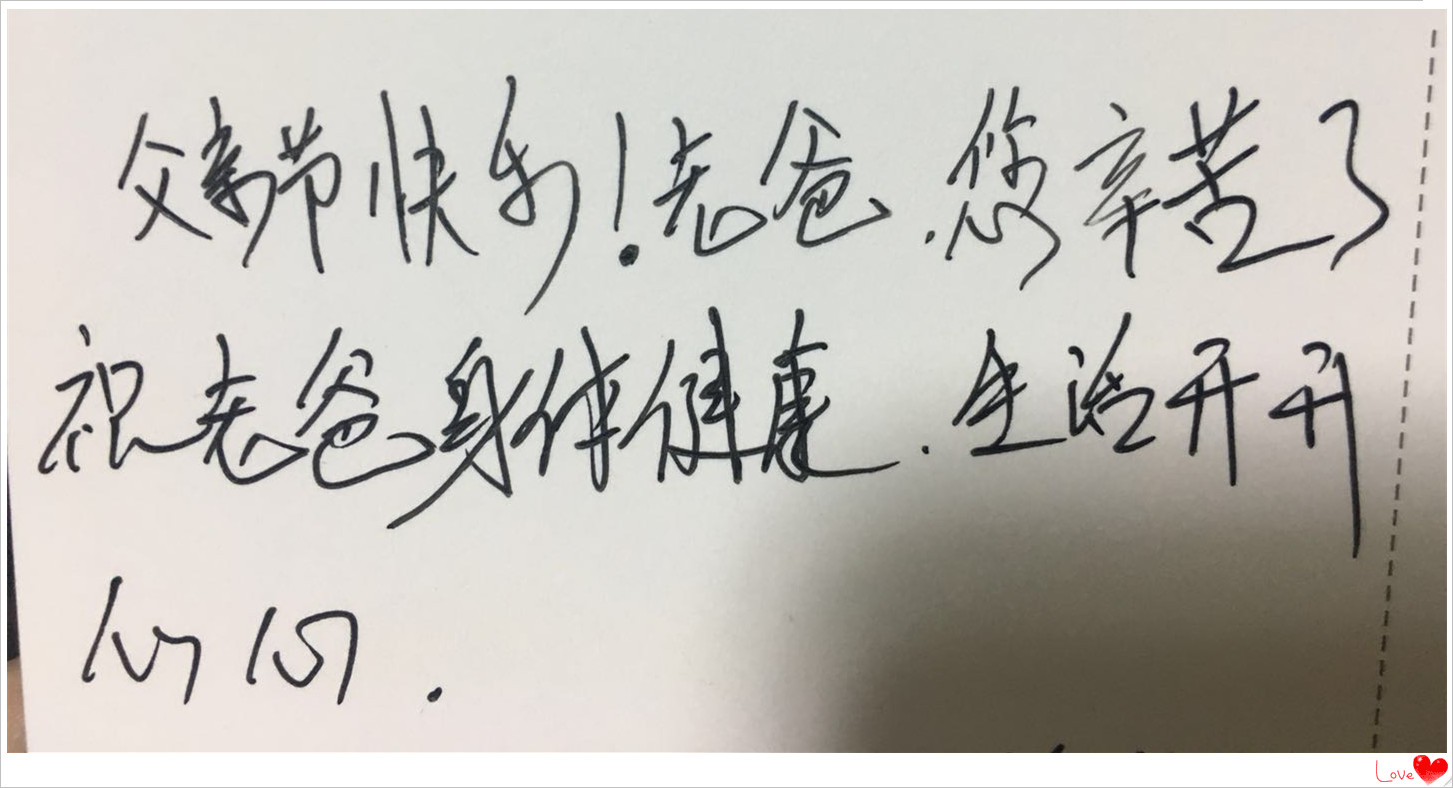 父亲节快乐!老爸.您辛苦了
祝老爸身体健康.生活开开
心心.
Love